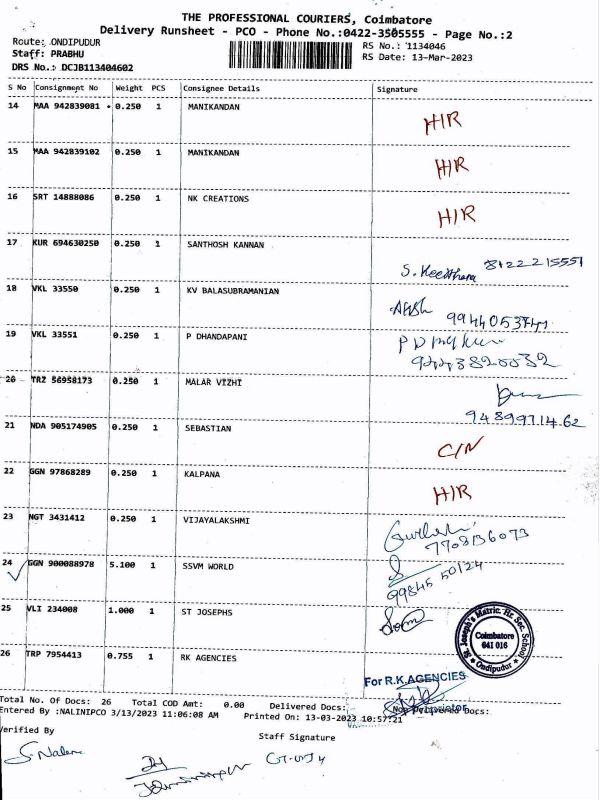 THE PROFESSIONAL COURIERS, Coimbatore
Delivery Runsheet - PCO - Phone No.:0422-3505555 - Page No.:2
Route: ONDIPUDUR
RS No.: 1134046
Staff: PRABHU
RS Date: 13-Mar-2023
DRS No.: DCJB113404602
S No Consignment No Weight PCS Consignee Details Signature
14 MAA 942839081 0.250 1 MANIKANDAN HIR
15 MAA 942839102 0.250 1 MANIKANDAN HIR
16 SRT 14888086 0.250 1 NK CREATIONS HIR
17 KUR 694630250 0.250 1 SANTHOSH KANNAN
S. Keerthana 8122215551
18 VKL 33550 0.250 1 KV BALASUBRAMANIAN
19 VKL 33551 0.250 1 P DHANDAPANI
20 TRZ 56958173 0.250 1 MALAR VIZHI
9489971462
21 NDA 905174905 0.250 1 SEBASTIAN C/N
22 GGN 97868289 0.250 1 KALPANA HIR
23 NGT 3431412 0.250 1 VIJAYALAKSHMI
7708136073
24 GGN 900088978 5.100 1 SSVM WORLD
99845 50124
25 VLI 234008 1.000 1 ST JOSEPHS
St. Joseph's Matric. Hr. Sec. School
Coimbatore
641 016
Ondipudur
26 TRP 7954413 0.755 1 RK AGENCIES
For R.K.AGENCIES
Proprietor
Total No. Of Docs: 26 Total COD Amt: 0.00 Delivered Docs: Non Delivered Docs:
Entered By :NALINIPCO 3/13/2023 11:06:08 AM Printed On: 13-03-2023 10:57:21
Verified By
Staff Signature
S. Nalini